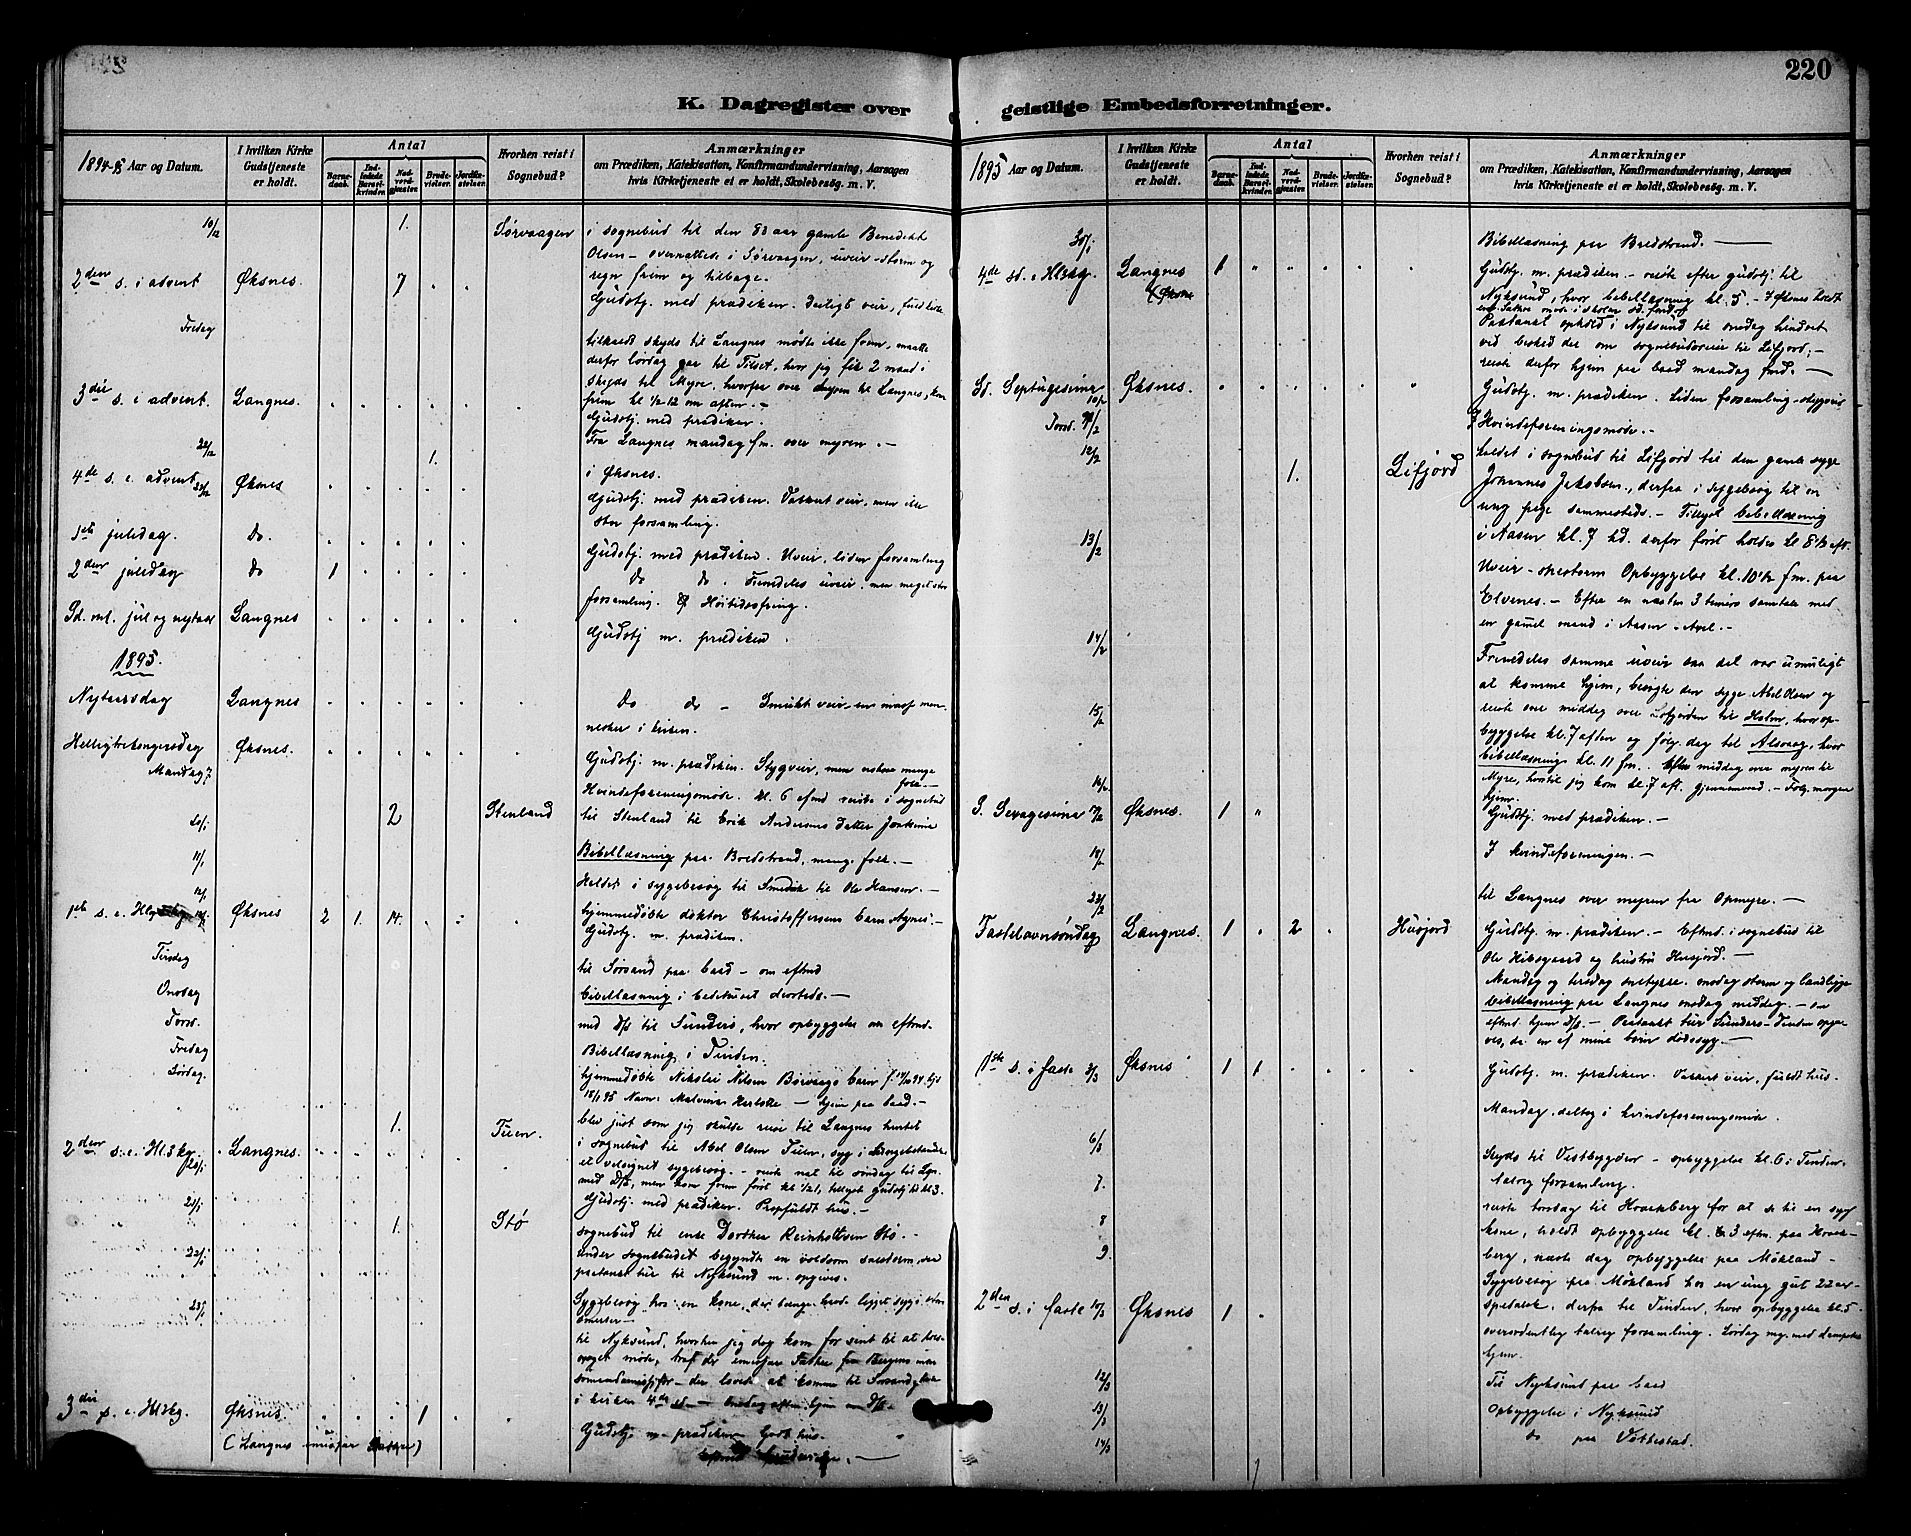 220
K. Dagregister over geistlige Embedsforretninger.
1894-95 Aar og Datum.
I hvilken Kirke Gudstjeneste er holdt.
Antal
Barnedaab.
Indledede Barselkvinder.
Nadverdgjester.
Brudevielser.
Jordfæstelser.
Hvorhen reist i Sognebud?
Anmærkninger
om Prædiken, Katekisation, Konfirmandundervisning, Aarsagen
hvis Kirketjeneste ei er holdt, Skolebesøg. m. V.
10/12 1. Sørvaagen i sognebud til den 83 aar gamle Benedikt
Olsen - overnattede i Sørvaagen, uveir-storm og
regn frem og tilbage.
2den s. i advent Øksnes. 7 Gudstj. med prædiken. Deiligt veir, fuld kirke
Fredag tilkaldt skyds til Langnes mødte ikke frem, maatte
derfor lørdag gaa til Tilset, hvor jeg fik 2 mand i
skyds til Myre, hvorfra over myren til Langnes, kom
frem kl 1/2 12 om aften. -
3die s. i advent. Langnes. Gudstj. med prædiken.
Fra Langnes mandag fm. over myren. -
22/12 1. i Øksnes.
4de s. i advent 23/12 Øksnes Gudstj. med prædiken. Vakkert veir, men ikke
stor forsamling.
1ste juledag. do. Gudstj. med prædiken. Uveir, liden forsamling
2den juledag do 1 do do. Fremdeles uveir, men meget stor
forsamling. Høitidsofring.
Sd. ml. jul og nytaar Langnes Gudstj m. prædiken.
1895.
Nytaarsdag Langnes do do - Smukt veir, en masse men-
nesker i kirken.
Helligtrekongersdag Øksnes. Gudstj. m. prædiken. Stygveir, men endnu mange
folk. -
Mandag 7 Kvindeforeningsmøde. kl. 6 efmd reiste i sognebud
2 Stenland til Stenland til Erik Andersens datter Joakime
10/1 Bibellæsning paa Bredstrand, mange folk. -
11/1 Hentet i sygebesøg til Smedvik til Ole Hansen. -
12/1 hjemmedøbte doktor Christoffersens barn Agnes. -
1ste s. e. Hl 13/1 Øksnes 2 1. 14. Gudstj. m. prædiken.
Tirsdag til Sørsand paa baad - om eftmd
Onsdag bibellæsning i bedehuset dersteds. -
Torsd. med D/S til Sunderø, hvor opbyggelse om eftmd.
Fredag Bibellæsning i Tinden.
Lørdag. hjemmedøbte Nikolai Nilsen Børvaags barn
Navn: Malvina Herlotte - hjem paa baad. -
1. Tuen. blev just som jeg skulde reise til Langnes hentet
i sognebud til Abel Olsen Tuen, syg i Lungebetændelse
et velsignet sygebesøg. - reiste nat til søndag til Lgn.
med D/S, men kom frem først kl 1/2 1, tillyst gudstj til kl 3.
2den s. e. Hl3kg. 20/1 Langnes. Gudstj. med prædiken. Propfuldt hus. -
21/1 1. Stø sognebud til enke Dorthea Reinholtsen Stø. -
22/1 under sognebudet begyndte en voldsom snestorm, saa
paatænkt tur til Nyksund m. opgives.
23/1 Sygebesøg hos en kone, der længe havde ligget syg i store
smerter -
til Nyksund, hvorhen jeg dog kom for sent til at besøget
møde, traf der emissær Sathre fra Bergens indre
sømandsmission - der lovede at komme til Sørsand
i kirken 4de sd - Onsdag aften hjem m D/S.
3die s. e. Hl3kg. Øksnes. 1 Gudstj. m. prædiken Godt hus.
(Langnes emissær Sathre)
1895 Aar og Datum.
I hvilken Kirke Gudstjeneste er holdt.
Antal
Barnedaab.
Indledede Barselkvinder.
Nadverdgjester.
Brudevielser.
Jordfæstelser.
Hvorhen reist i Sognebud?
Anmærkninger
om Prædiken, Katekisation, Konfirmandundervisning, Aarsagen
hvis Kirketjeneste ei er holdt, Skolebesøg. m. V.
30/1 Bibellæsning paa Bredstrand. -
4de sd. e. Hl3kg. Langnes 1 Gudstj. m. prædiken - reiste efter gudstj. til
Nyksund, hvor bibellæsning kl. 5. - I Øksnes holdt
em. Sathre møde i skolen sd. formd
Paatænkt ophold i Nyksund til onsdag hindret
ved besked der om sognebudsreise til Lifjord; -
reiste derfor hjem paa baad mandag fmd. -
Sd. Septuagesima 10/2 Øksnes. Gudstj. m. prædiken. Liden forsamling - stygveir
Torsd. 7/2 I Kvindeforeningsmøde. -
12/2 1. Lifjord hentet i sognebud til Lifjord til den gamle syge
Johannes Jakobsen, derfra i sygebesøg til en
ung pige sammesteds. - Tillyst bibellæsning
i Aasen kl. 7 bd. derfor først holdes kl 8 1/2 aft.
13/2 Uveir - snestorm Opbyggelse kl. 10 1/2 fm. paa
Elvenes. - Efter en næsten 3 timers samtale med
en gammel mand i Aasen - Axel. -
14/2 Fremdeles samme uveir saa det var umuligt
at komme hjem, besøgte den syge Abel Olsen og
15/2 reiste over middag over Lifjorden til Holm, hvor op-
byggelse kl. 7 aften og følg. dag til Alsvaag, hvor
bibellæsning kl. 11 fm. - Efter middag over myren til
16/2 Myre, hvortil jeg kom kl. 7 aft. gjennemvaad - Følg. morgen
hjem.
S. Sexagesima 17/2 Øksnes. 1 Gudstj. med prædiken. -
18/2 I kvindeforeningen. -
23/2 til Langnes over myren fra Opmyre. -
Fastelavnssøndag Langnes. 1 2 Husjord Gudstj. m. prædiken. - Eftmd. i sognebud til
Ole Hilsgaard og hustru Husjord. -
Mandag og tirsdag snetykke. onsdag storm og landligge
bibellæsning paa Langnes onsdag middag. - om
eftmd. hjem D/S. - Paatænkt tur Sunderø-Tinden opgi-
ves, da en af mine børn dødssyg. -
1ste s. i faste 3/3 Øksnes 1 1 Gudstj. m. prædiken. Vakkert veir, fuldt hus.
Mandag deltog i kvindeforeningsmøde.
6/3 Skyds til Vestbygden - opbyggelse kl. 6 i Tinden.
Talrig forsamling.
7. reiste torsdag til Hovenberg for at se til en syg
8 kone, holdt opbyggelse kl. 3 eftm. paa Hoven-
9. berg, næste dag opbyggelse paa Mökland.
Sygebesøg paa Mökland hos en ung gut 22 aar
2den s. i faste 10/3 Øksnes 1 spedalsk, derfra til Tinden, hvor opbyggelse kl. 5
overordentlig talrig forsamling. Lørdag mg. med dampskib
hjem.
12/3 Til Nyksund paa baad
13/3 Opbyggelse i Nyksund
14/3 do paa Vottestad.